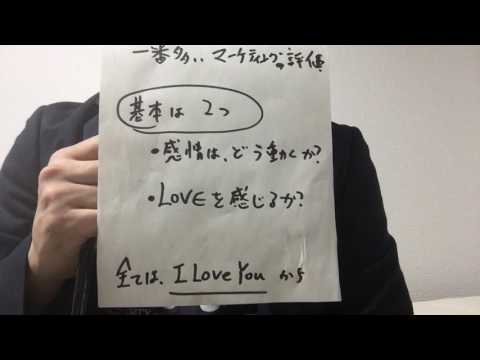 一番多い、マーケティングの評価
基本は 2つ
・感情は、どう動くか?
・LOVEを感じるか?
全ては、I Love You から